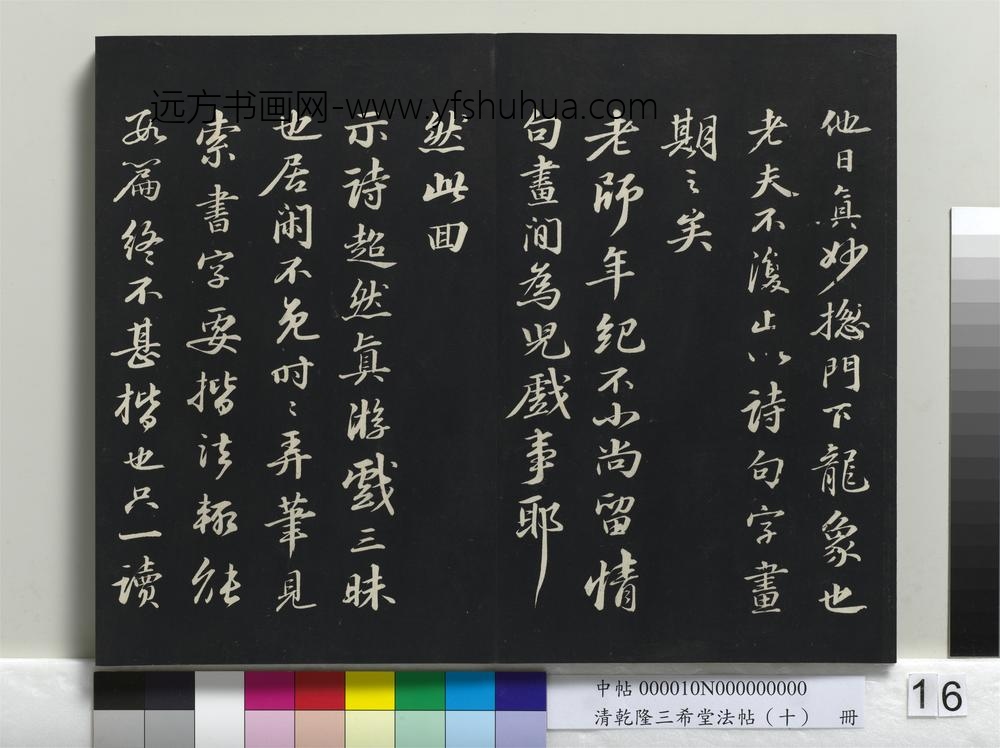 他日真妙揔門下龍象也
老夫不復止以詩句字畫
期之矣
老師年紀不小尚留情
句畫間為兒戲事耶
然此回
示詩超然真游戲三昧
也居閑不免時〻弄筆見
索書字要楷法輒往
數篇終不甚楷也只一讀
远方书画网-www.yfshuhua.com
中帖 000010N000000000
清乾隆三希堂法帖（十） 冊
16